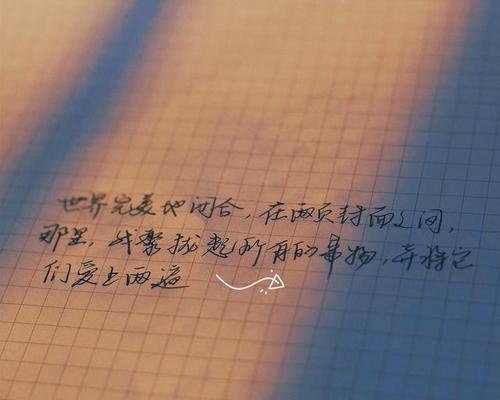 世界完美地闭合，在两页封面之间，
那里，我聚拢起所有的事物，并将它
们爱上两遍